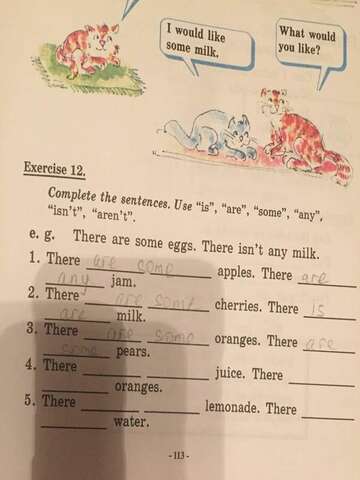 I would like
some milk.
What would
you like?
Exercise 12.
Complete the sentences. Use “is”, “are”, “some”, “any”,
“isn't”, “aren't”.
e. g. There are some eggs. There isn't any milk.
1. There are come apples. There are
any jam.
2. There are some cherries. There is
are milk.
3. There are some oranges. There are
come pears.
4. There ______ ______ juice. There ______
______ oranges.
5. There ______ ______ lemonade. There ______
______ water.
- 113 -